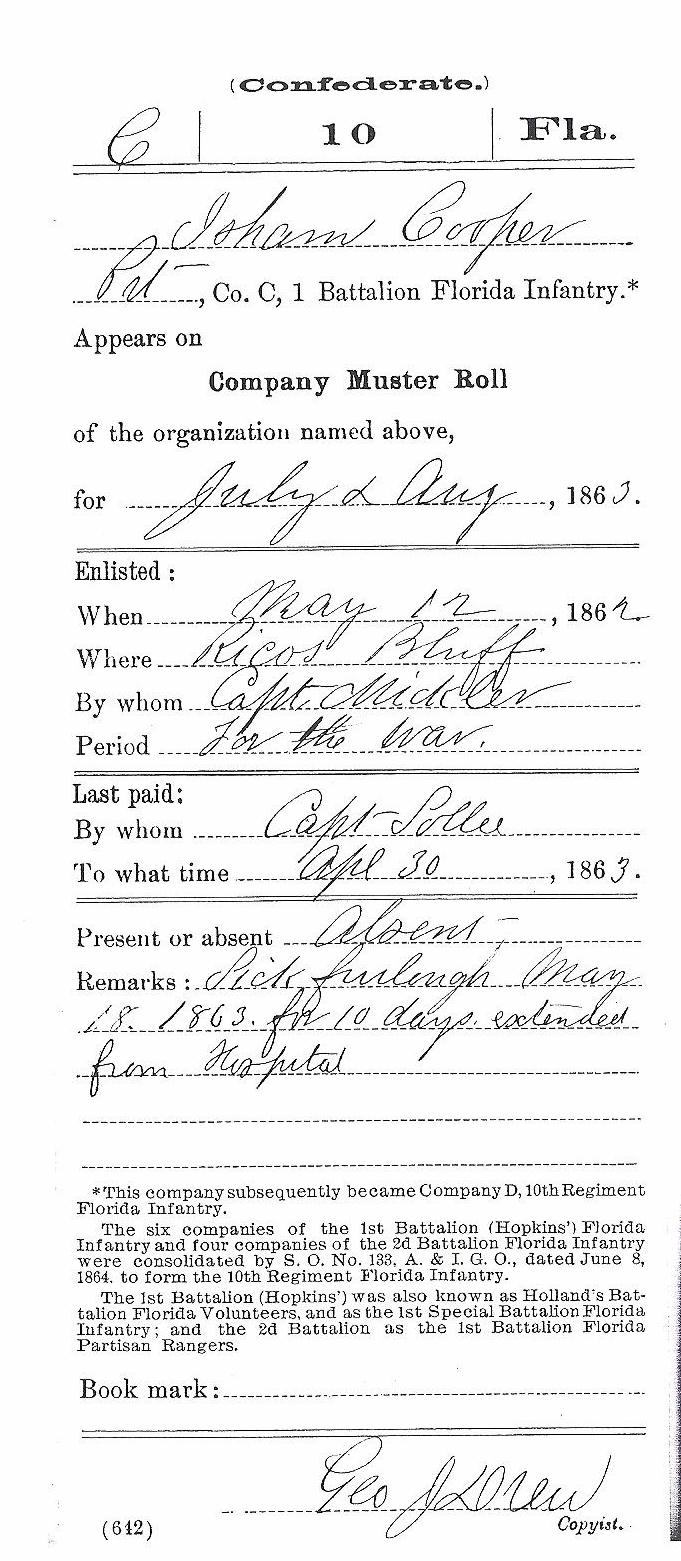 (Confederate.)
C | 10 | Fla.
Isham Cooper
Pvt, Co. C, 1 Battalion Florida Infantry.*
Appears on
Company Muster Roll
of the organization named above,
for July & Aug, 1863.
Enlisted:
When May 12, 1862.
Where Ricos Bluff
By whom Capt. Mickler
Period For the war.
Last paid:
By whom Capt Sollee
To what time Apl 30, 1863.
Present or absent Absent
Remarks: Sick furlough May
18. 1863. for 10 days. extended
from Hospital
*This company subsequently became Company D, 10th Regiment
Florida Infantry.
The six companies of the 1st Battalion (Hopkins') Florida
Infantry and four companies of the 2d Battalion Florida Infantry
were consolidated by S. O. No. 133, A. & I. G. O., dated June 8,
1864, to form the 10th Regiment Florida Infantry.
The 1st Battalion (Hopkins') was also known as Holland's Bat-
talion Florida Volunteers, and as the 1st Special Battalion Florida
Infantry; and the 2d Battalion as the 1st Battalion Florida
Partisan Rangers.
Book mark:
Geo J Drew
(642) Copyist.